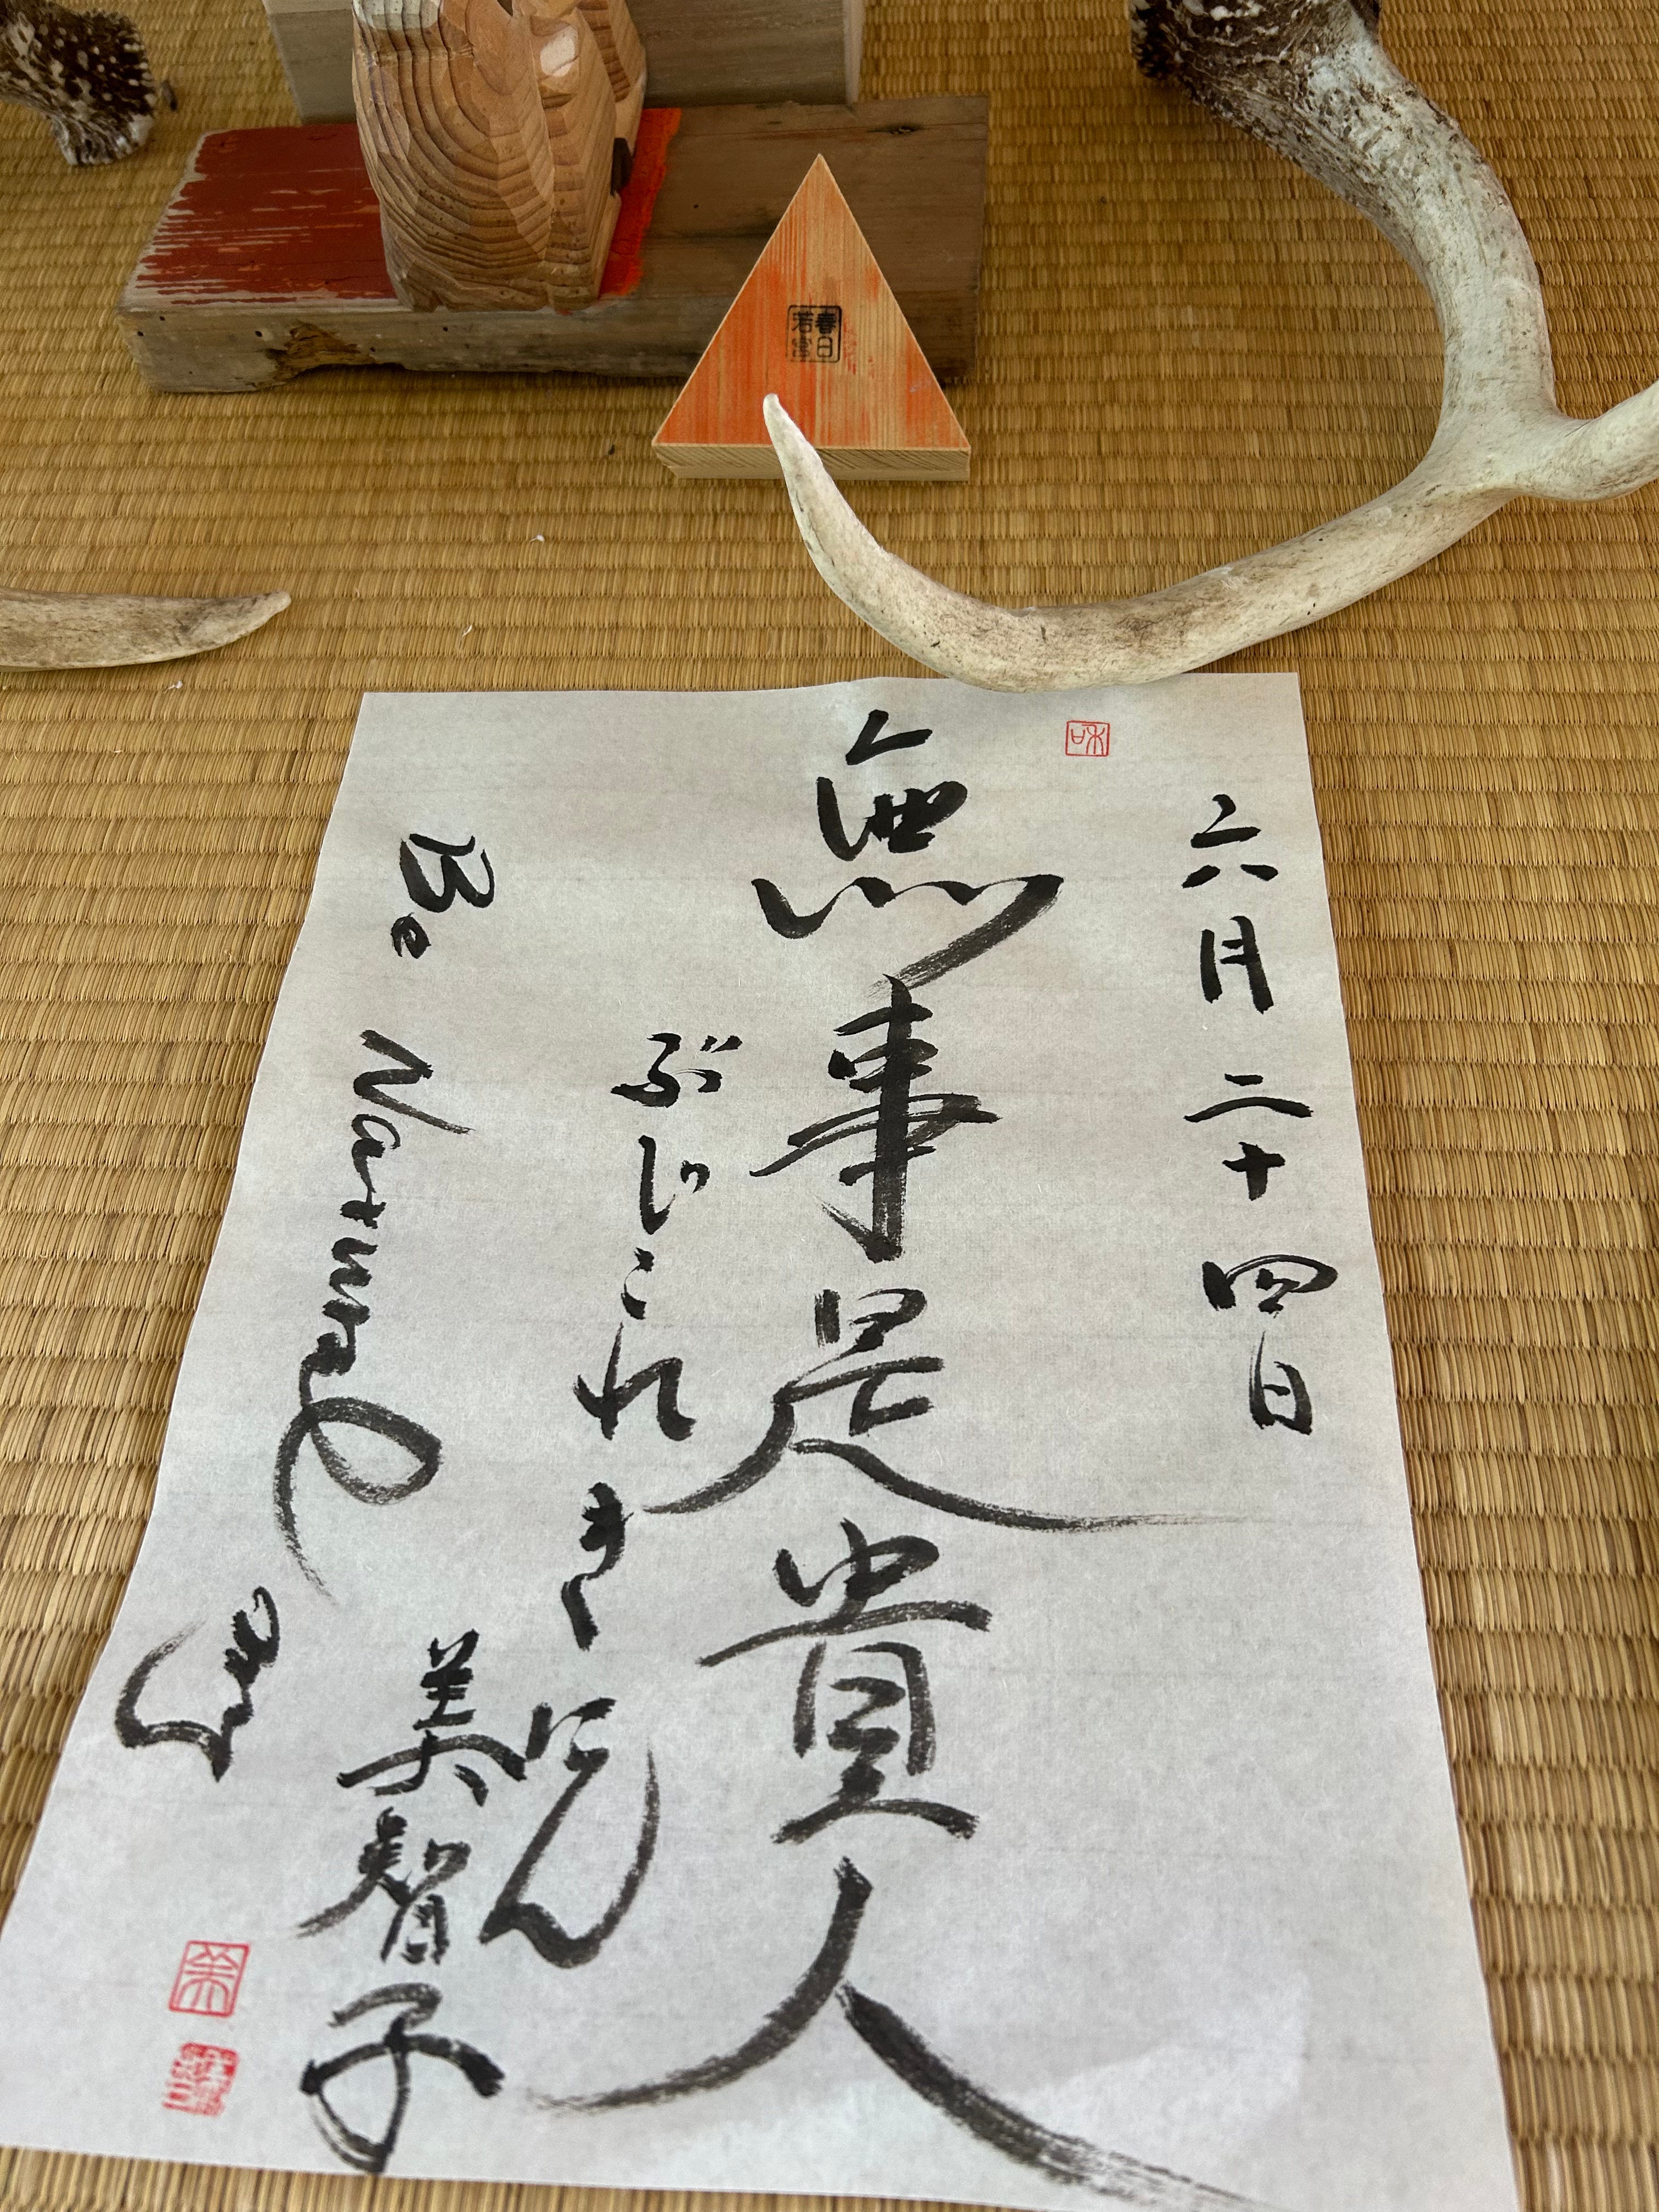 春日
若宮
和
六月二十四日
無事是貴人
ぶじこれきにん
Be Natural
美智子